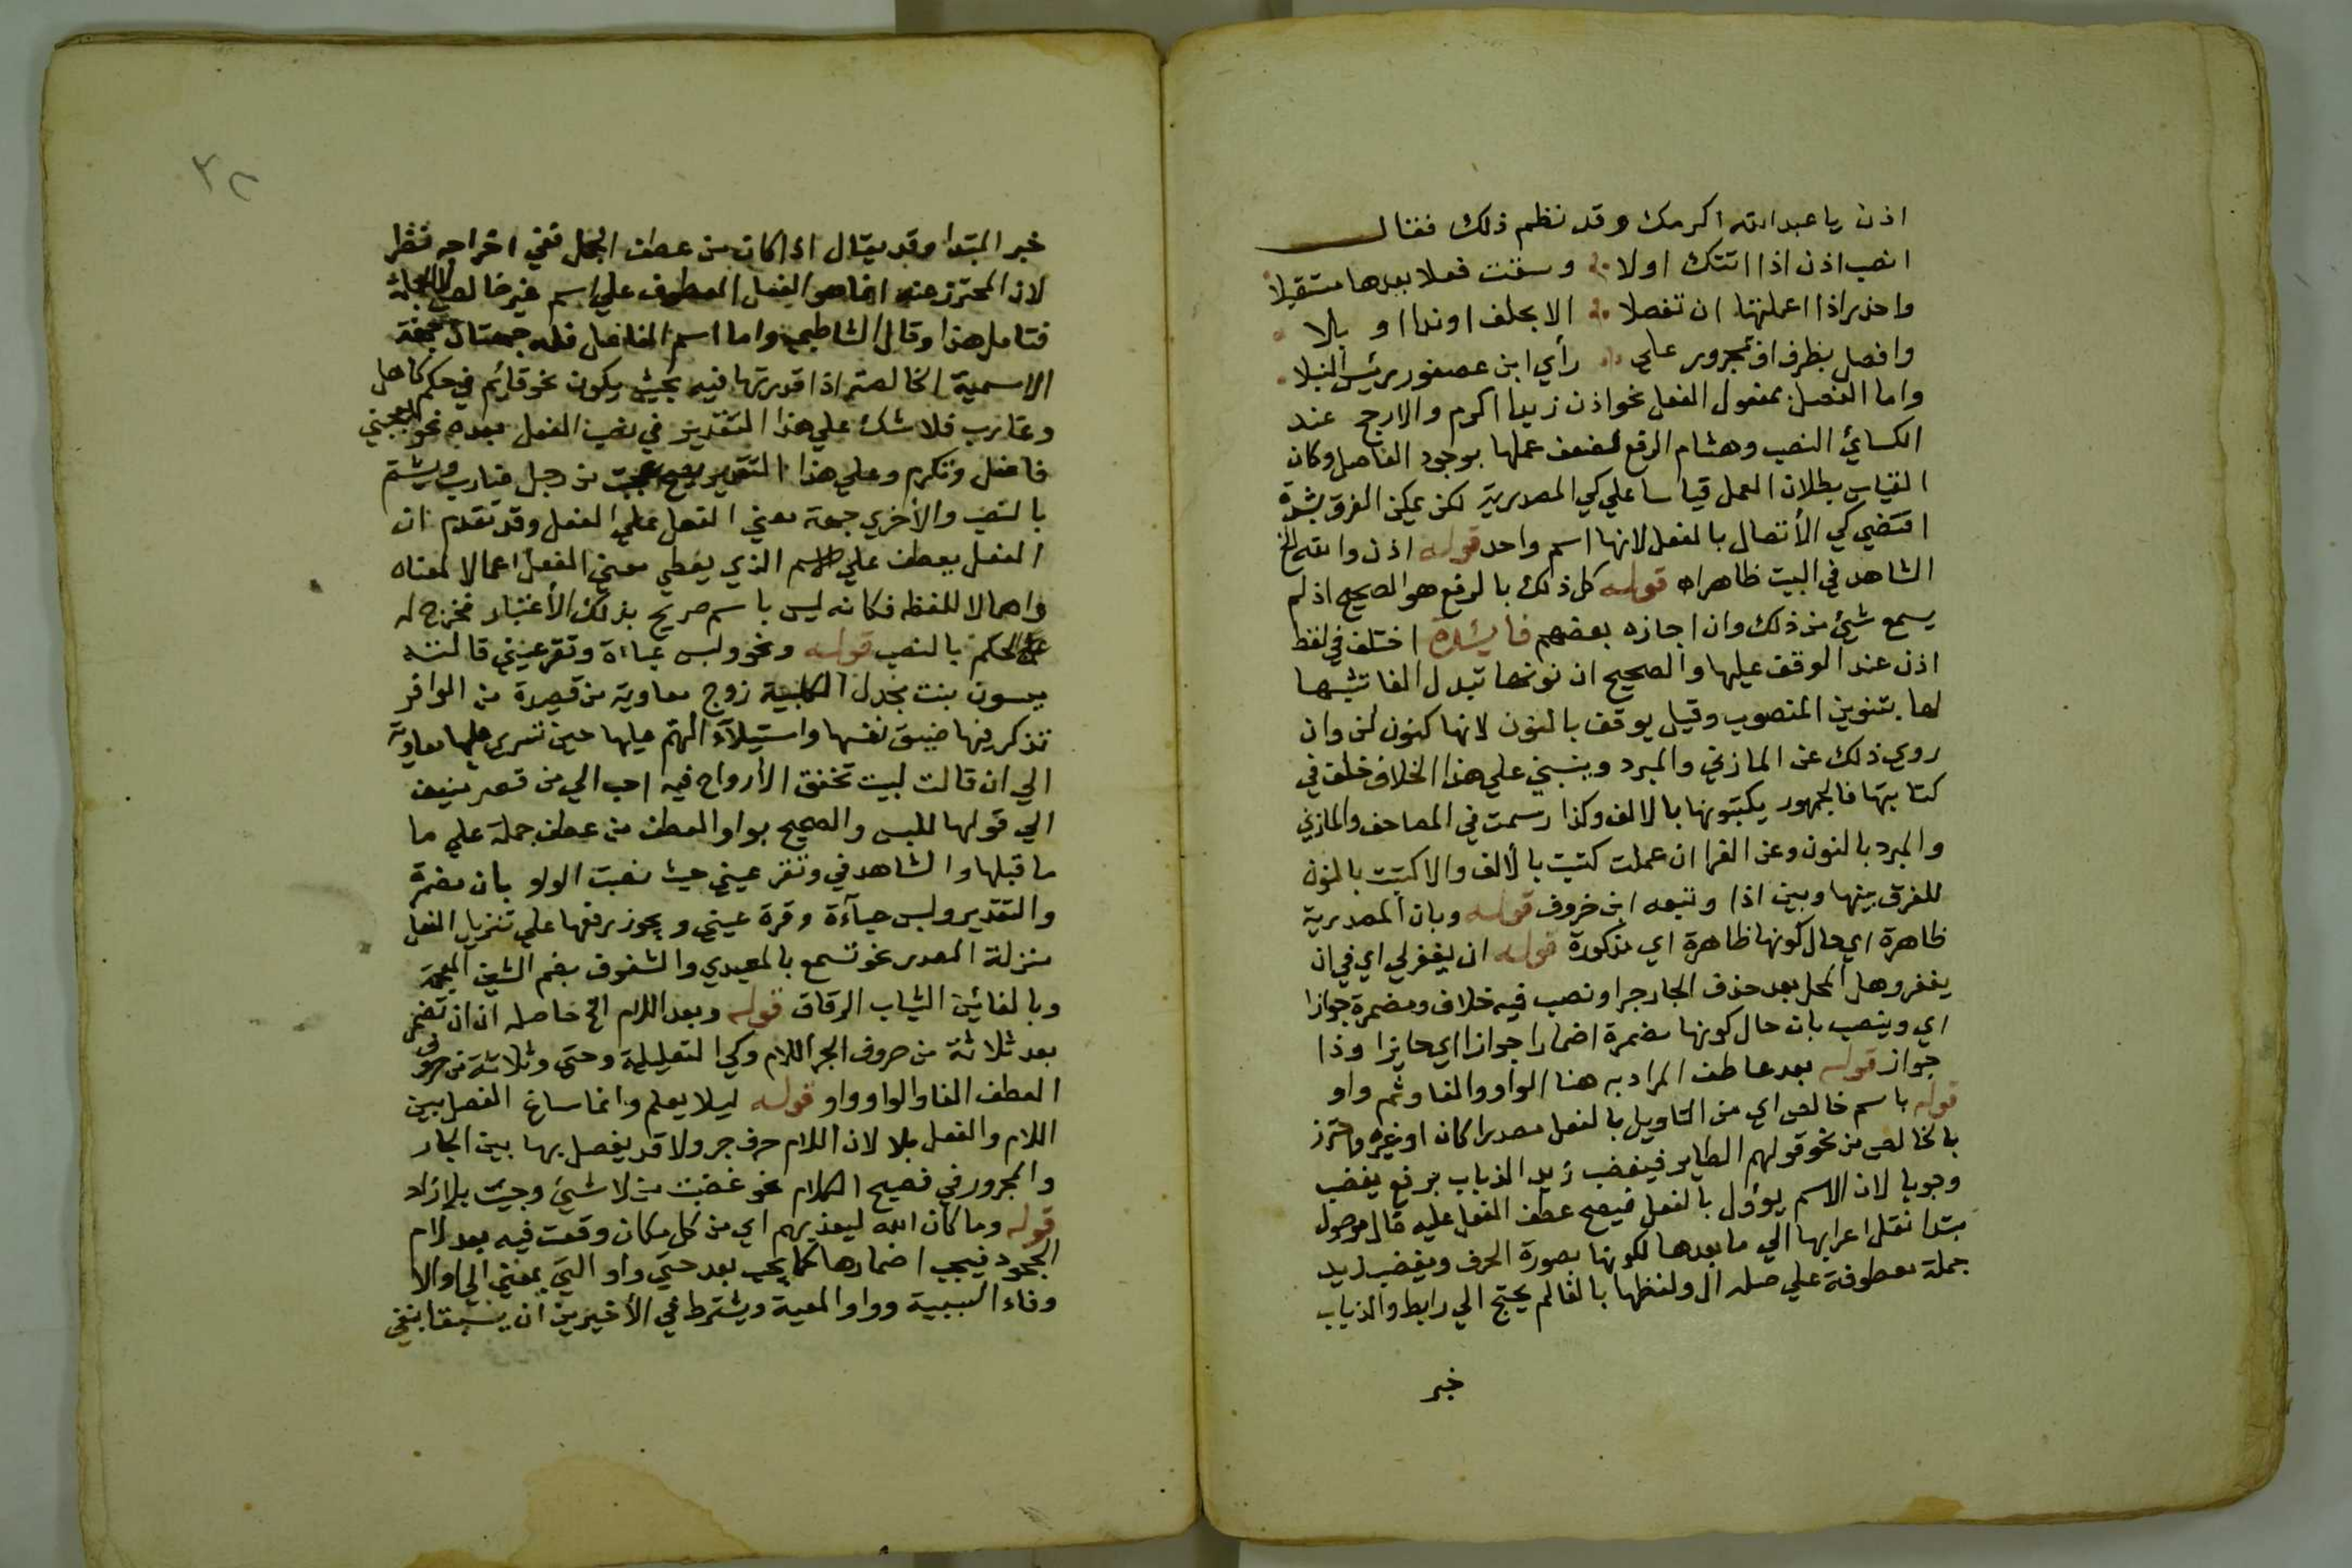 اذن يا عبد الله اكرمك وقد نظم ذلك فقال
انصب اذن اذا اتتك اولا وسقت فعلا بعدها مستقبلا
واحذر اذا اعملتها ان تفصلا الا بحلف او ندا او بلا
وافصل بظرف او بمجرور علي رأي ابن عصفور رئيس النبلا
واما الفصل بمعمول الفعل نحو اذن زيدا اكرم والارجح عند
الكسائي النصب وهشام الرفع لضعف عملها بوجود الفاصل وكان
القياس بطلان العمل قياسا علي كي المصدرية لكن يمكن الفرق بشدة
اقتضي كي الأتصال بالفعل لانها اسم واحد قوله اذن والله الخ
الشاهد في البيت ظاهر اه قوله كل ذلك بالرفع هو الصحيح اذ لم
يسمع شيئ من ذلك وان اجازه بعضهم فايئدة اختلف في لفظ
اذن عند الوقف عليها والصحيح ان نونها تبدل الفا تشبيها
لها بتنوين المنصوب وقيل يوقف بالنون لانها كنون لن وان
روي ذلك عن المازني والمبرد وينبني علي هذا الخلاف خلف في
كتابتها فالجمهور يكتبونها بالالف وكذا رسمت في المصاحف والمازني
والمبرد بالنون وعن الفرا ان عملت كتبت بالألف والا كتبت بالنون
للفرق بينها وبين اذا وتبعه ابن خروف قوله وبان المصدرية
ظاهرة اي حال كونها ظاهرة اي مذكورة قوله ان يغفر لي اي في ان
يغفر وهل المحل بعد حذف الجار جرا ونصب فيه خلاف ومضمرة جوازا
اي وينصب بان حال كونها مضمرة اضمارا جوازا اي جايزا وذا
جواز قوله بعد عاطف المراد به هنا الواو والفا وثم واو
قوله باسم خالص اي من التاويل بالفعل مصدرا كان او غيره واحترز
بالخالص من نحو قولهم الطاير فيغضب زيد الذباب برفع يغضب
وجوبا لان الاسم يوؤل بالفعل فيصح عطف الفعل عليه فال موصول
مبتدا نقل اعرابها الي ما بعدها لكونها بصورة الحرف ويغضب زيد
جملة معطوفة علي صلة ال ولفظها بالفا لم يحتج الي رابط والذباب
خبر
٣٢
خبر المبتدا وقد يقال اذا كان من عطف الجمل ففي اخراجه نظر
لان المحترز عنه انما هو الفعل المعطوف علي اسم غير خالص لا الجملة
فتامل هذا وقال الشاطبي واما اسم الفاعل فله جهتان جهة
الاسمية الخالصة اذا قدرتها فيه بحيث يكون نحو قائم في حكم كاهل
وغارب فلا شك علي هذا التقدير في نصب الفعل بعده نحو يعجبني
فاضل وتكرم وعلي هذا التقدير يصح عجبت من رجل ضارب ويشتم
بالنصب والأخري جهة معني الفعل علي الفعل وقد تقدم ان
الفعل يعطف علي الاسم الذي يعطي معني الفعل اعمالا لمعناه
واهمالا للفظه فكانه ليس باسم صريح بذلك الأعتبار فخرج له
علي الحكم بالنصب قوله ونحو ولبس عباءة وتقر عيني قالته
ميسون بنت بجدل الكلبية زوج معاوية من قصيدة من الوافر
تذكر فيها ضيق نفسها واستيلآء الهم عليها حين تسري عليها معاوية
الي ان قالت لبيت تخفق الارواح فيه احب الي من قصر منيف
الي قولها للبس والصحيح بواو العطف من عطف جملة علي ما
ما قبلها والشاهد في وتقر عيني حيث نصبت الواو بان مضمرة
والتقدير ولبس عبآءة وقرة عيني ويجوز رفعها علي تنزيل الفعل
منزلة المصدر نحو تسمع بالمعيدي والشفوف بضم الشين المعجمة
وبالفائين الثياب الرقاق قوله وبعد اللام الخ حاصله ان ان تضمر
بعد ثلاثة من حروف الجر اللام وكي التعليلية وحتي وثلاثة من حروف
العطف الفا والواو واو قوله ليلا يعلم وانما ساغ الفصل بين
اللام والفعل بلا لان اللام حرف جر ولا قد يفصل بها بين الجار
والمجرور في فصيح الكلام نحو غضبت من لا شيئ وجيت بلا زاد
قوله وما كان الله ليعذبهم اي من كل مكان وقعت فيه بعد لام
الجحود فيجب اضمارها كما يجب بعد حتي واو التي بمعني الي او الا
وفاء السببية وواو المعية ويشترط في الأخيرين ان يسبقا بنفي